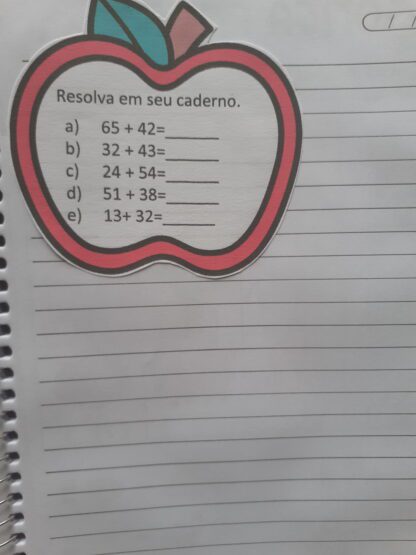 Resolva em seu caderno.
a) 65 + 42=______
b) 32 + 43=______
c) 24 + 54=______
d) 51 + 38=______
e) 13+ 32=______